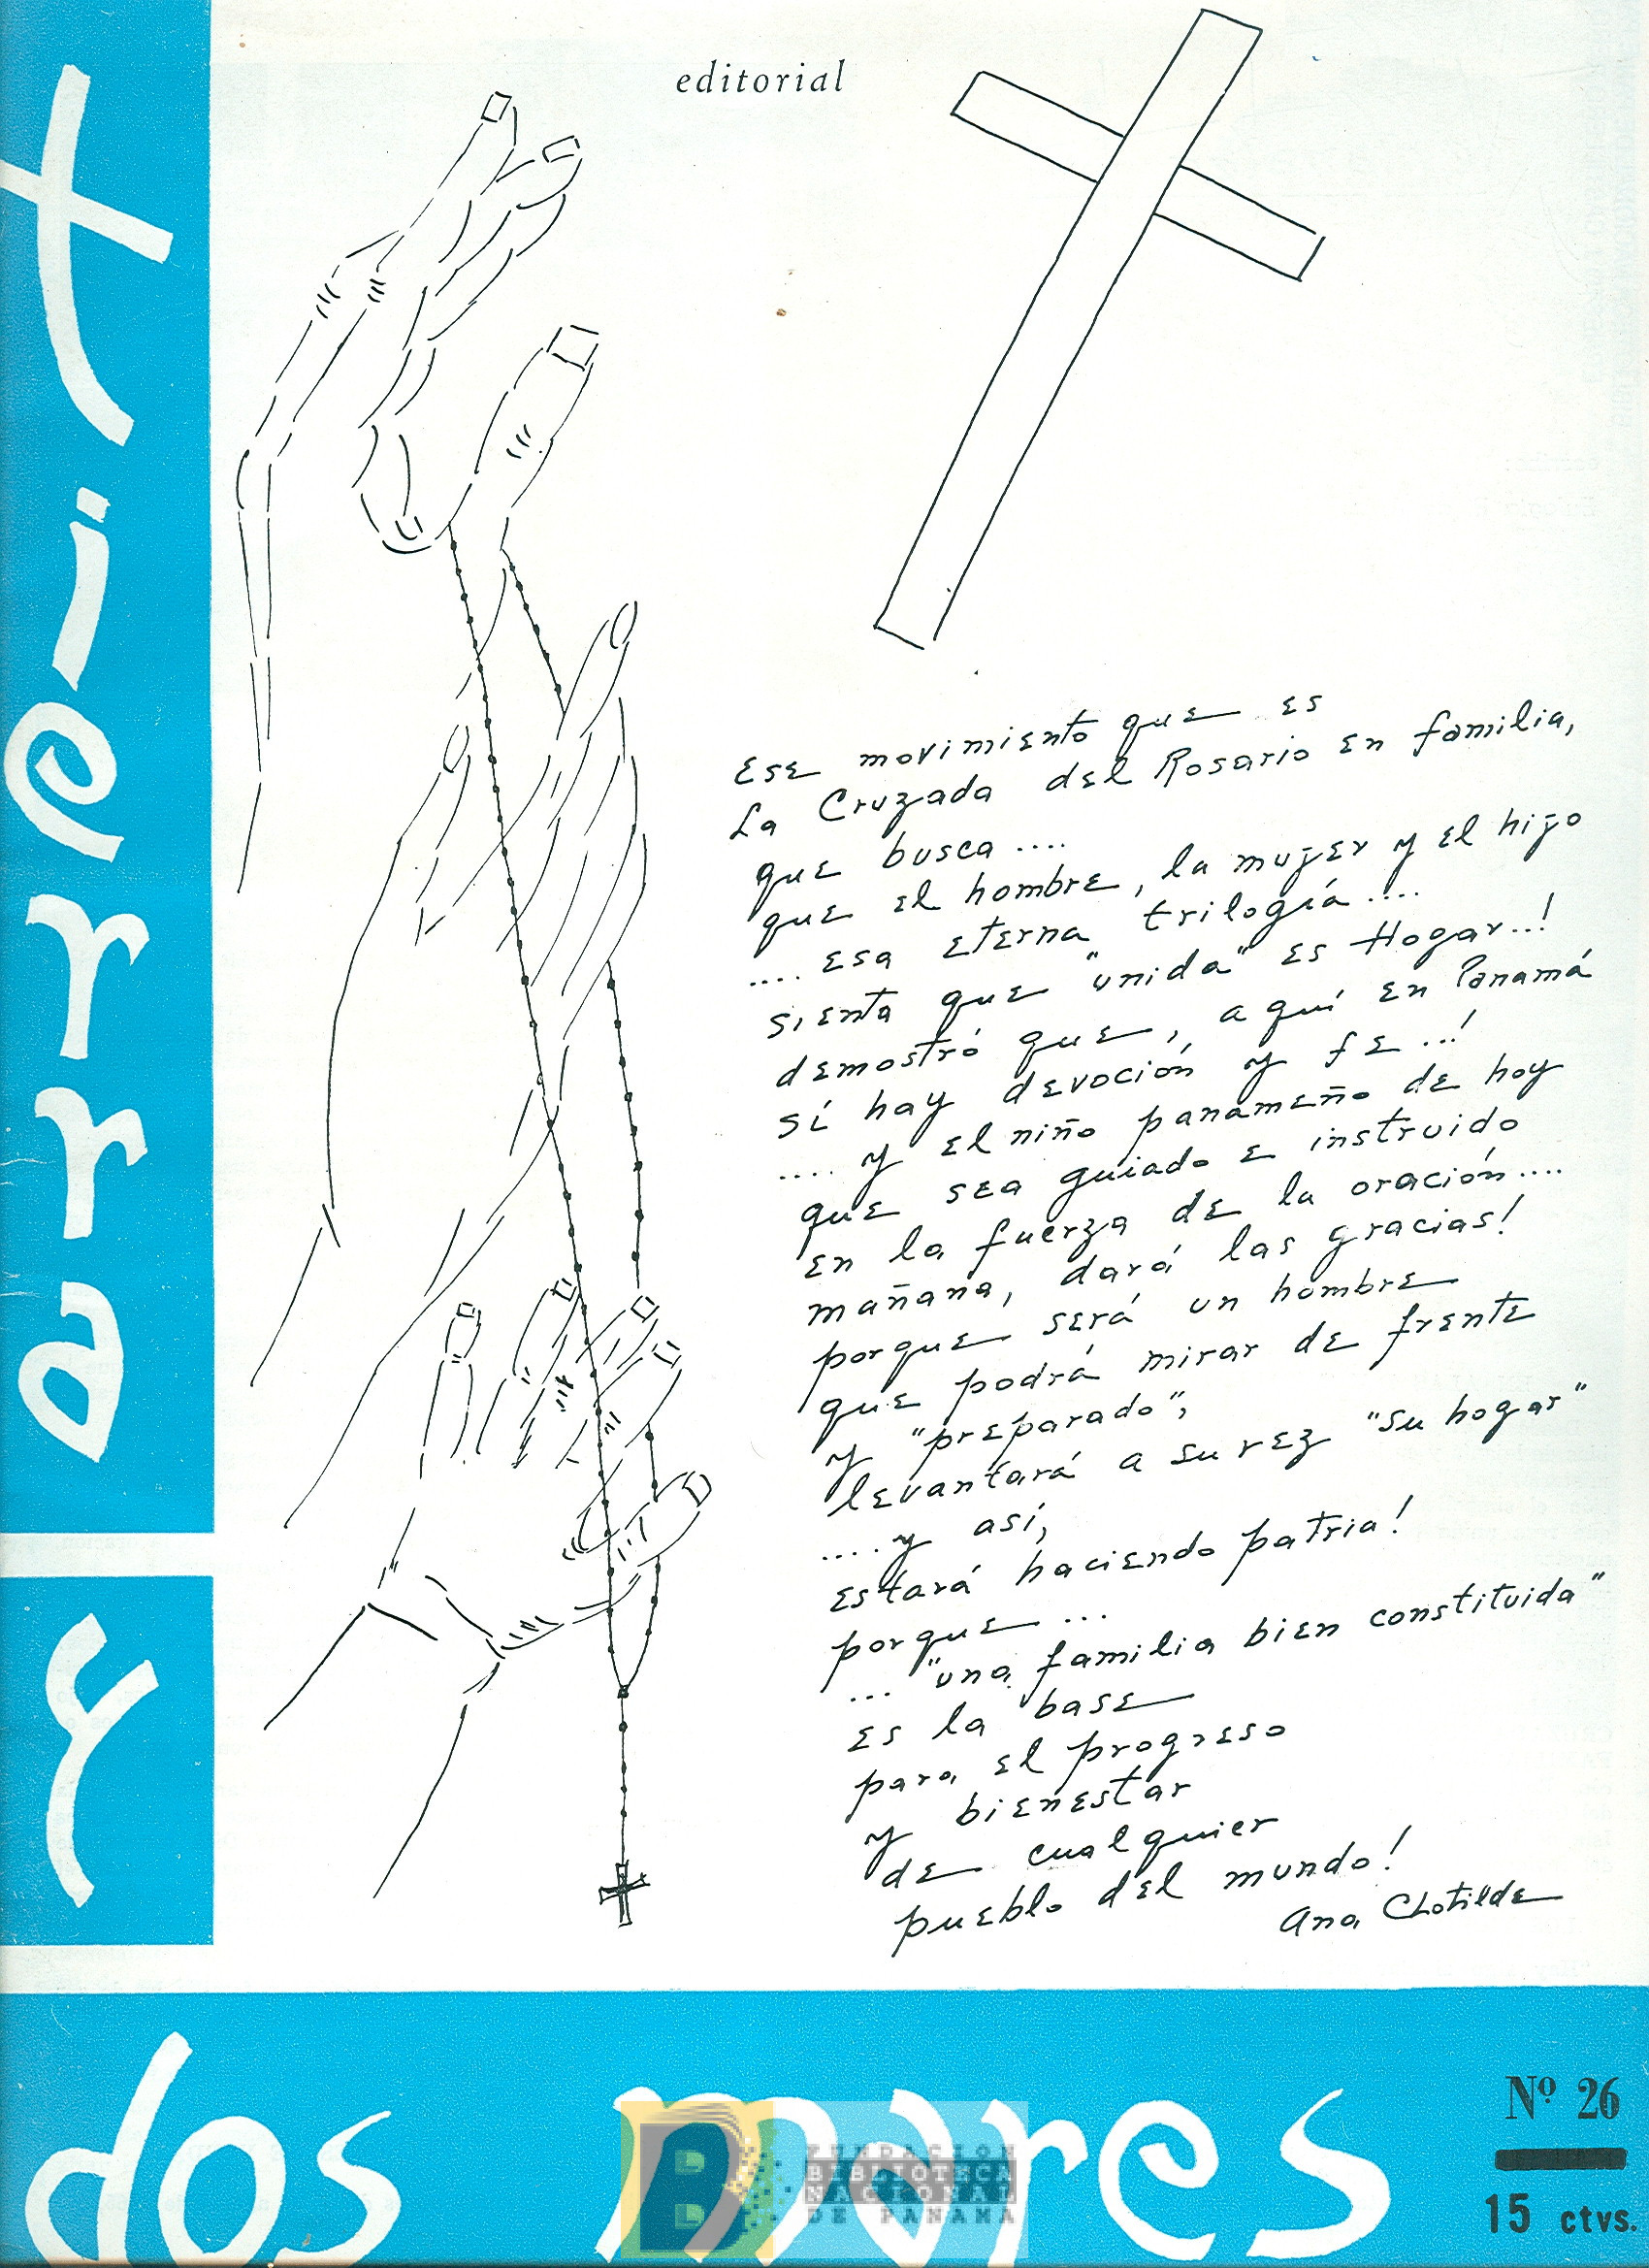 editorial
Ese movimiento que es
La Cruzada del Rosario en familia,
que busca....
que el hombre, la mujer y el hijo
.... esa eterna trilogía....
sienta que "unida" es Hogar..!
demostró que, aquí en Panamá
sí hay devoción y fe..!
.... y el niño panameño de hoy
que sea guiado e instruido
en la fuerza de la oración....
mañana, dará las gracias!
porque será un hombre
que podrá mirar de frente
y "preparado",
levantará a su vez "su hogar"
....y así,
estará haciendo patria!
porque...
... "una familia bien constituida"
es la base
para el progreso
y bienestar
de cualquier
pueblo del mundo!
Ana Clotilde
tierra
y
dos mares
Nº 26
15 ctvs.
FUNDACIÓN
BIBLIOTECA
NACIONAL
DE PANAMÁ